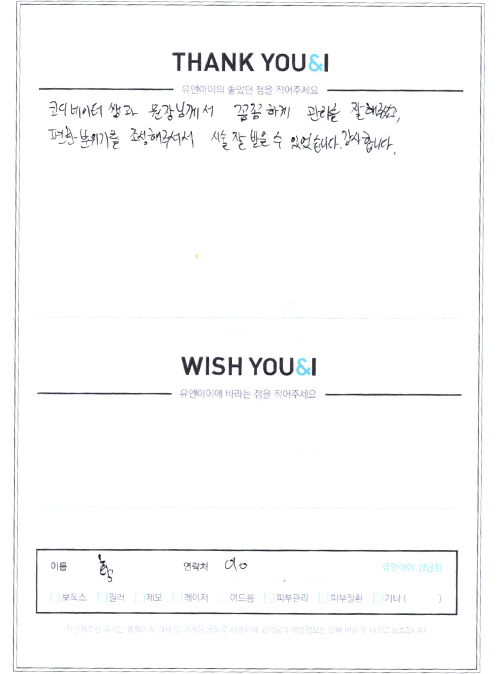 THANK YOU&I
유앤아이의 좋았던 점을 적어주세요
코디네이터 쌤과 원장님께서 꼼꼼하게 관리를 잘해주셨고,
편한 분위기를 조성해주셔서 시술 잘 받을 수 있었습니다. 감사합니다.
WISH YOU&I
유앤아이에 바라는 점을 적어주세요
이름 연락처 010 유앤아이 강남점
보톡스 필러 제모 레이저 여드름 피부관리 피부질환 기타 ( )